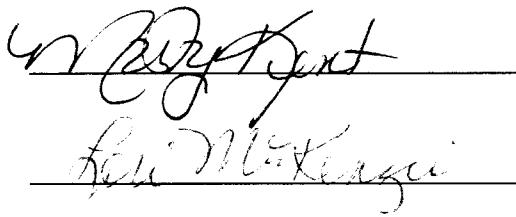 Marty Kent
Lori McKenzie